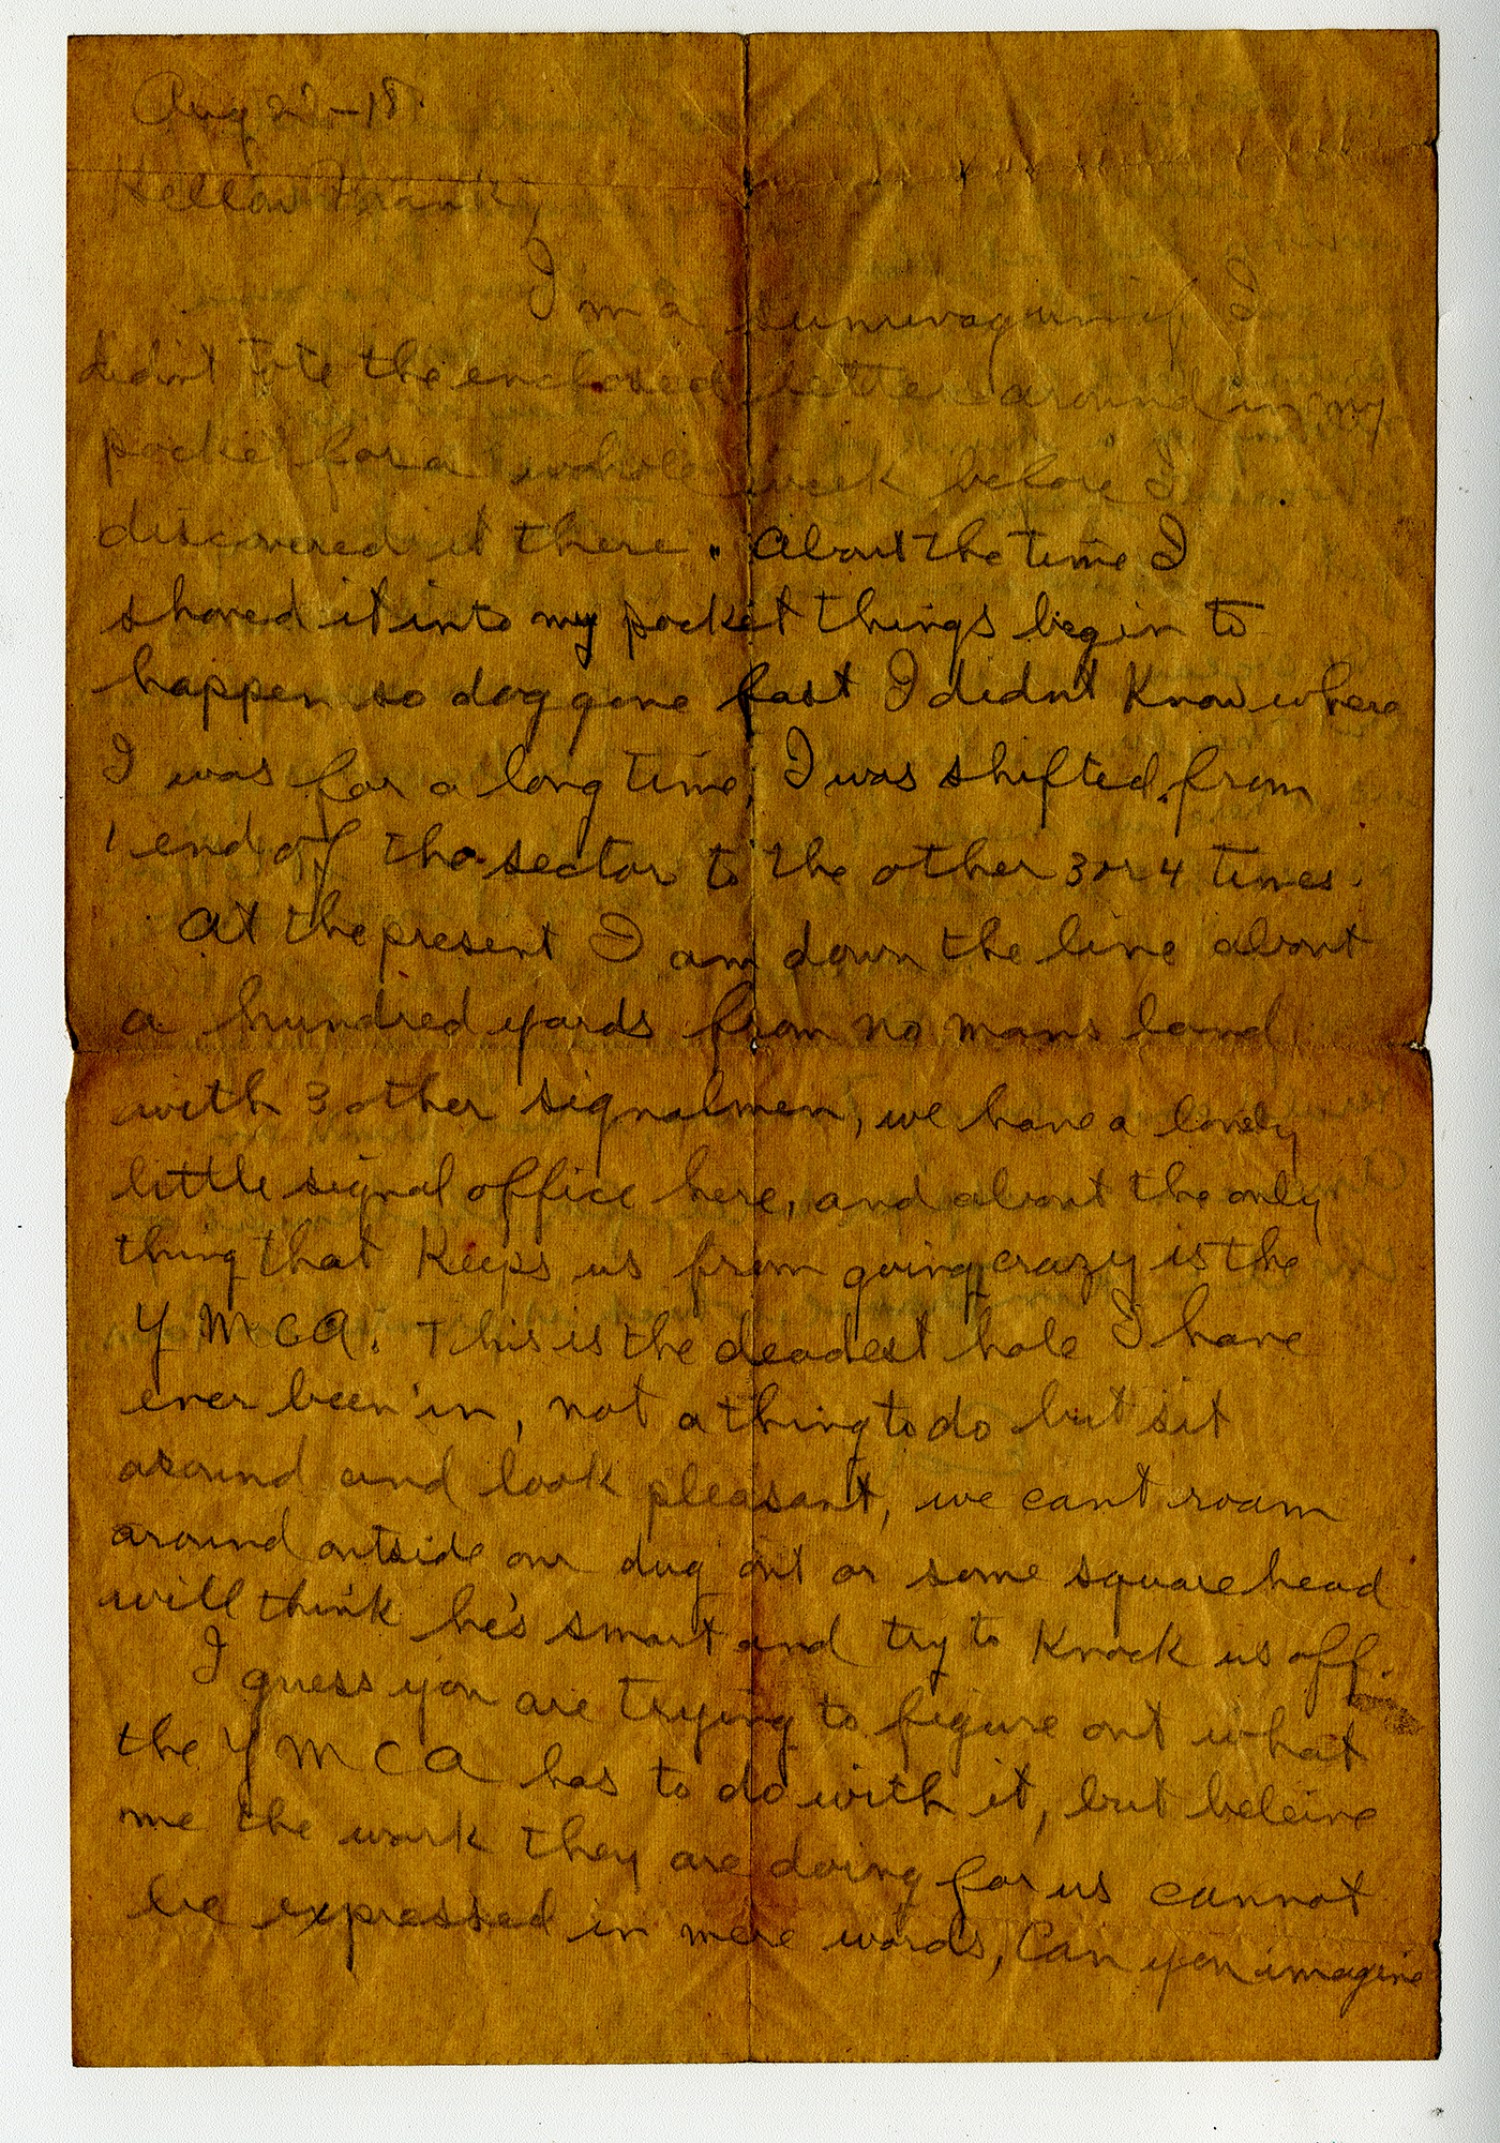 Aug 2 -18.
Hellow Frank,
I'm a sunuvagun if I
didnt tote the enclosed letter around in my
pocket for a whole week before I
discovered it there. About the time I
shoved it into my pocket things begin to
happen so dog gone fast I didnt know where
I was for a long time, I was shifted from
1 end of the sector to the other 3 or 4 times.
At the present I am down the line about
a hundred yards from no mans land
with 3 other signalmen, we have a lonely
little signal office here, and about the only
thing that keeps us from going crazy is the
Y M C A. This is the deadest hole I have
ever been in, not a thing to do but sit
around and look pleasant, we cant roam
around outside our dug out or some squarehead
will think he's smart and try to knock us off.
I guess you are trying to figure out what
the Y M C A has to do with it, but beleive
me the work they are doing for us cannot
be expressed in mere words, Can you imagine